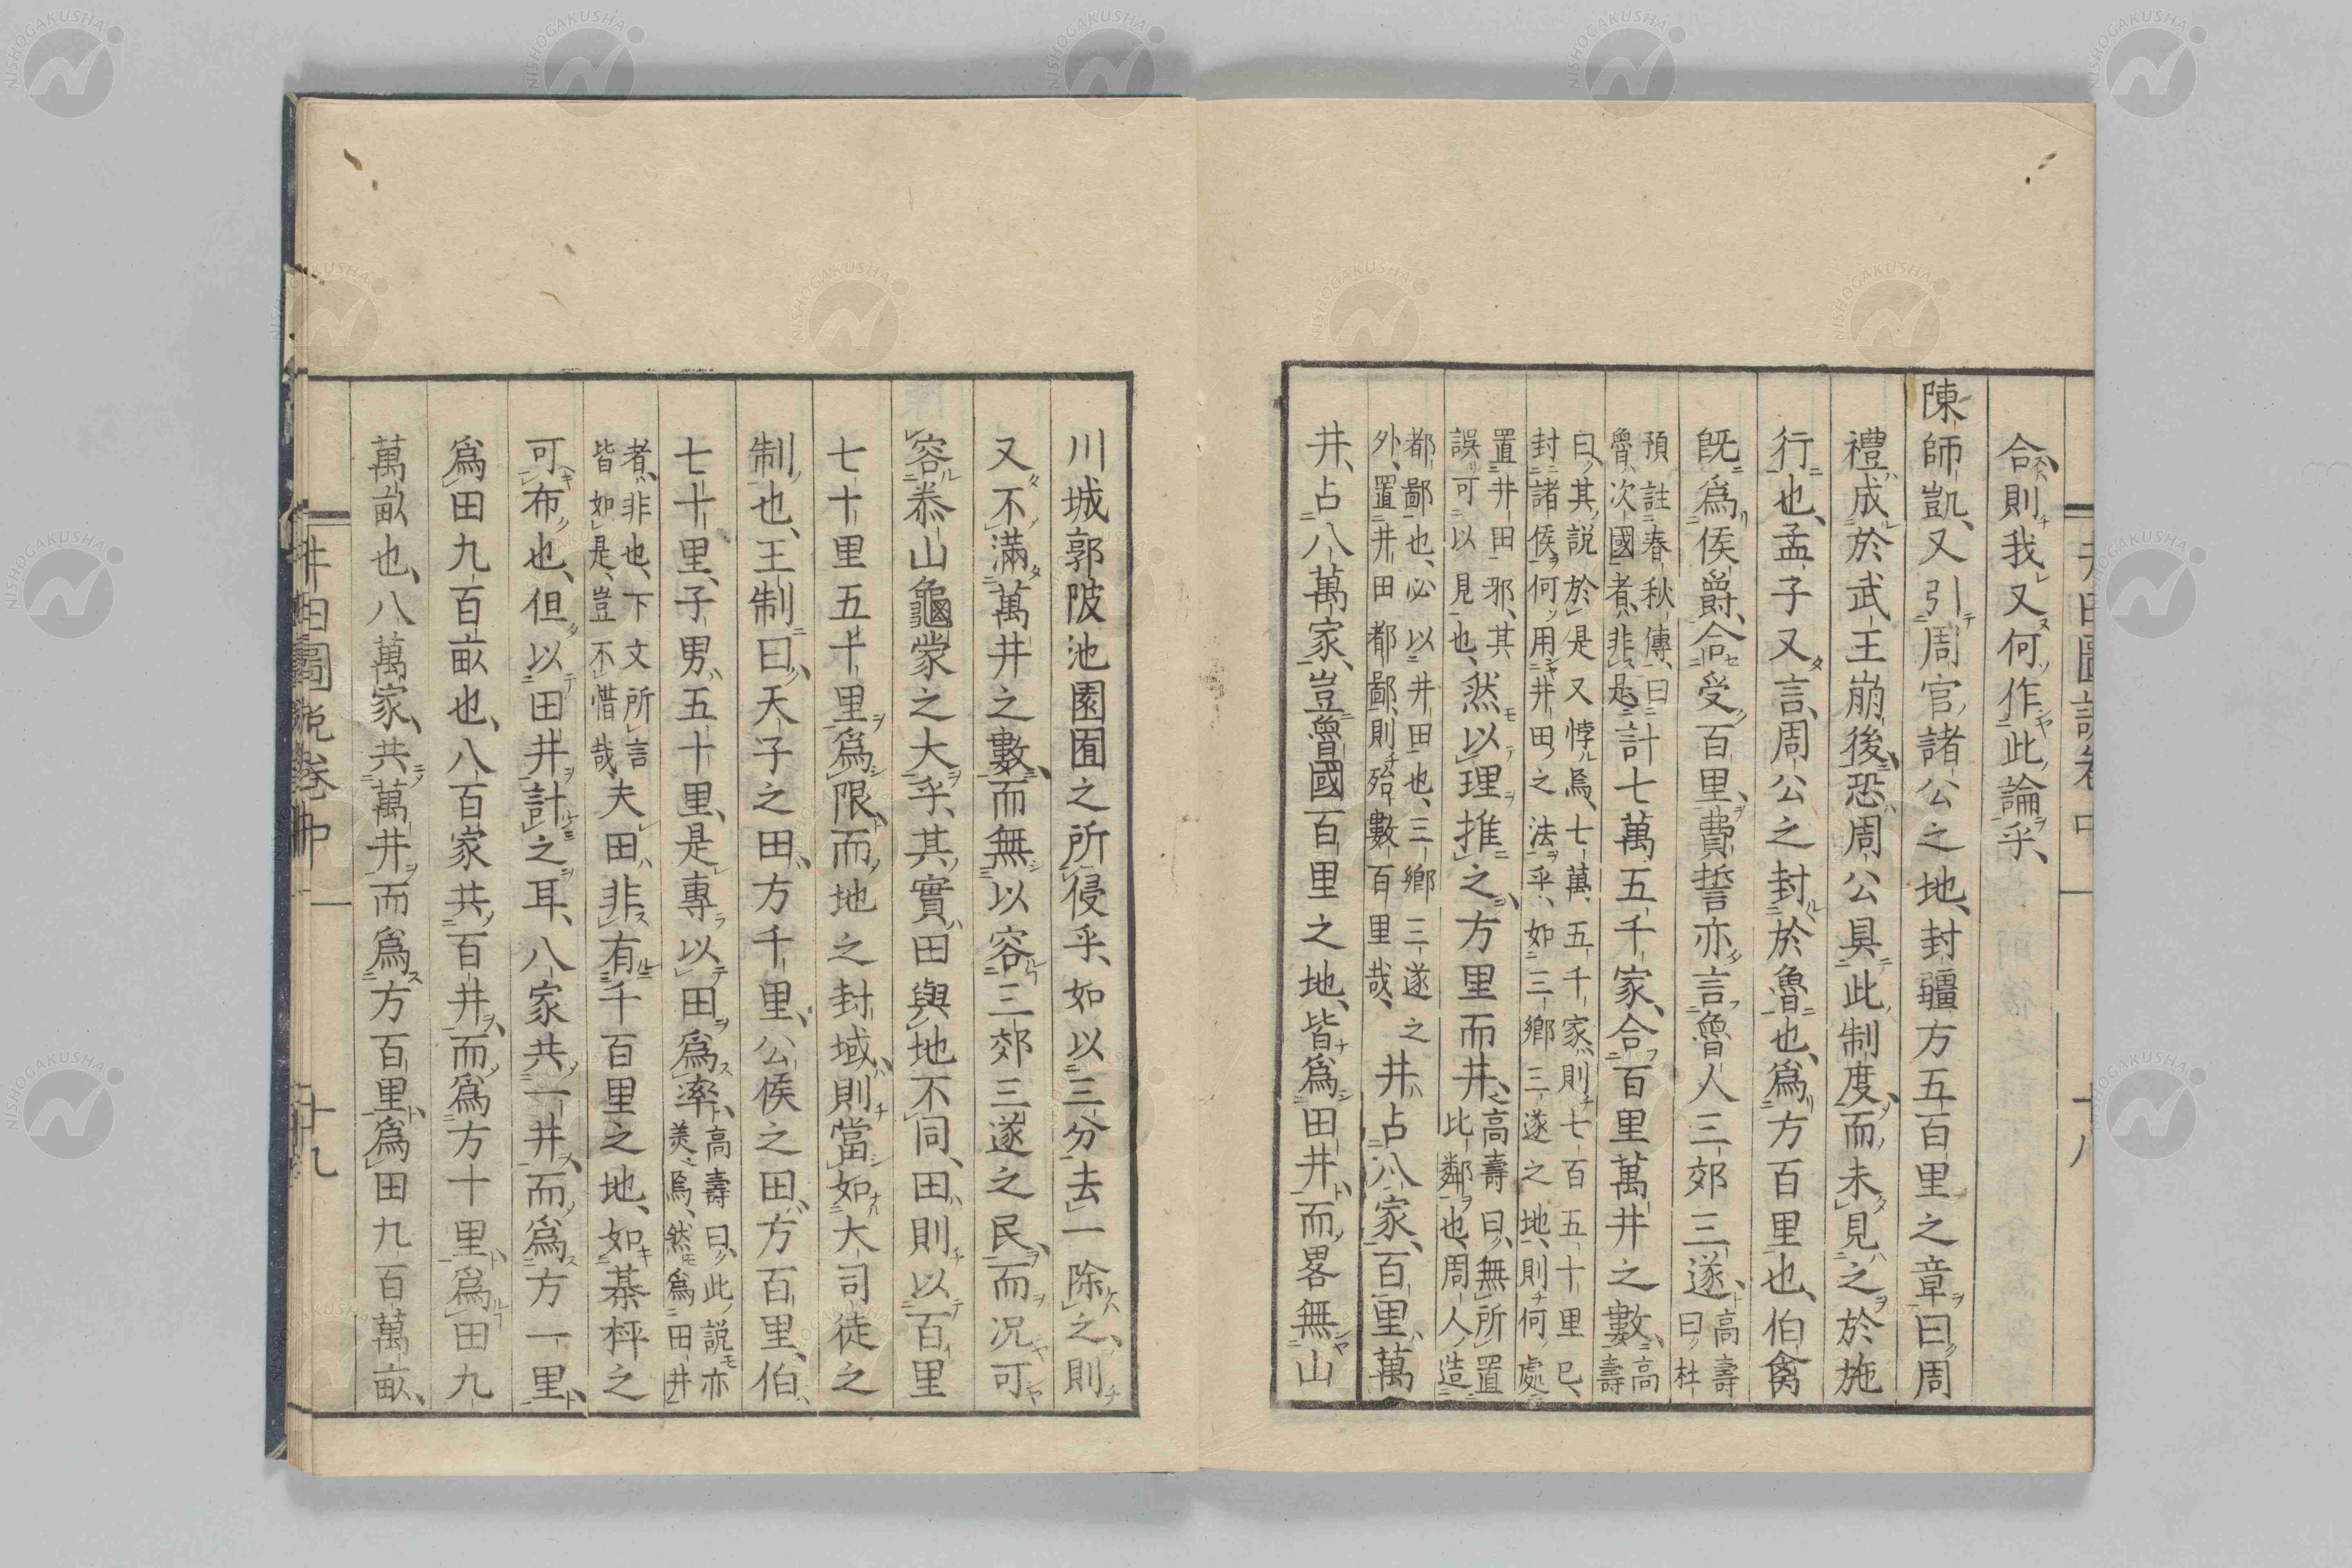 井田圖說卷中 十八
合、則我又何作此論乎、
陳師凱、又引周官諸公之地、封疆方五百里之章曰周
禮成於武王崩後、恐周公具此制度、而未見之於施
行也、孟子又言、周公之封於魯也、爲方百里也、伯禽
既爲侯爵、合受百里、費誓亦言魯人三郊三遂、高壽曰、杜
預註春秋傳曰魯、次國者、非是計七萬五千家、合百里萬井之數、高壽
曰、其說於是又悖焉、七萬五千家、則七百五十里已、封諸侯何用井田之法乎、如三鄉三遂之地、則何處
置井田邪、其誤可以見也、然以理推之、方里而井、高壽曰、無所置比鄰也、周人造
都鄙也、必以井田也、三鄉三遂之外、置井田都鄙、則殆數百里哉、井占八家、百里萬
井、占八萬家、豈魯國百里之地、皆爲田井、而畧無山
川城郭陂池園囿之所侵乎、如以三分去一除之、則
又不滿萬井之數、而無以容三郊三遂之民、而况可
容泰山龜蒙之大乎、其實田與地不同、田則以百里
七十里五十里爲限、而地之封域、則當如大司徒之
制也、王制曰、天子之田、方千里、公侯之田、方百里、伯、
七十里、子男、五十里、是專以田爲率、高壽曰、此說亦美焉、然爲田井
者、非也、下文所言皆如是、豈不惜哉、夫田非有千百里之地、如棊枰之
可布也、但以田井計之耳、八家共一井、而爲方一里、
爲田九百畝也、八百家共百井、而爲方十里、爲田九
萬畝也、八萬家、共萬井而爲方百里、爲田九百萬畝、
井田圖說卷中 十九